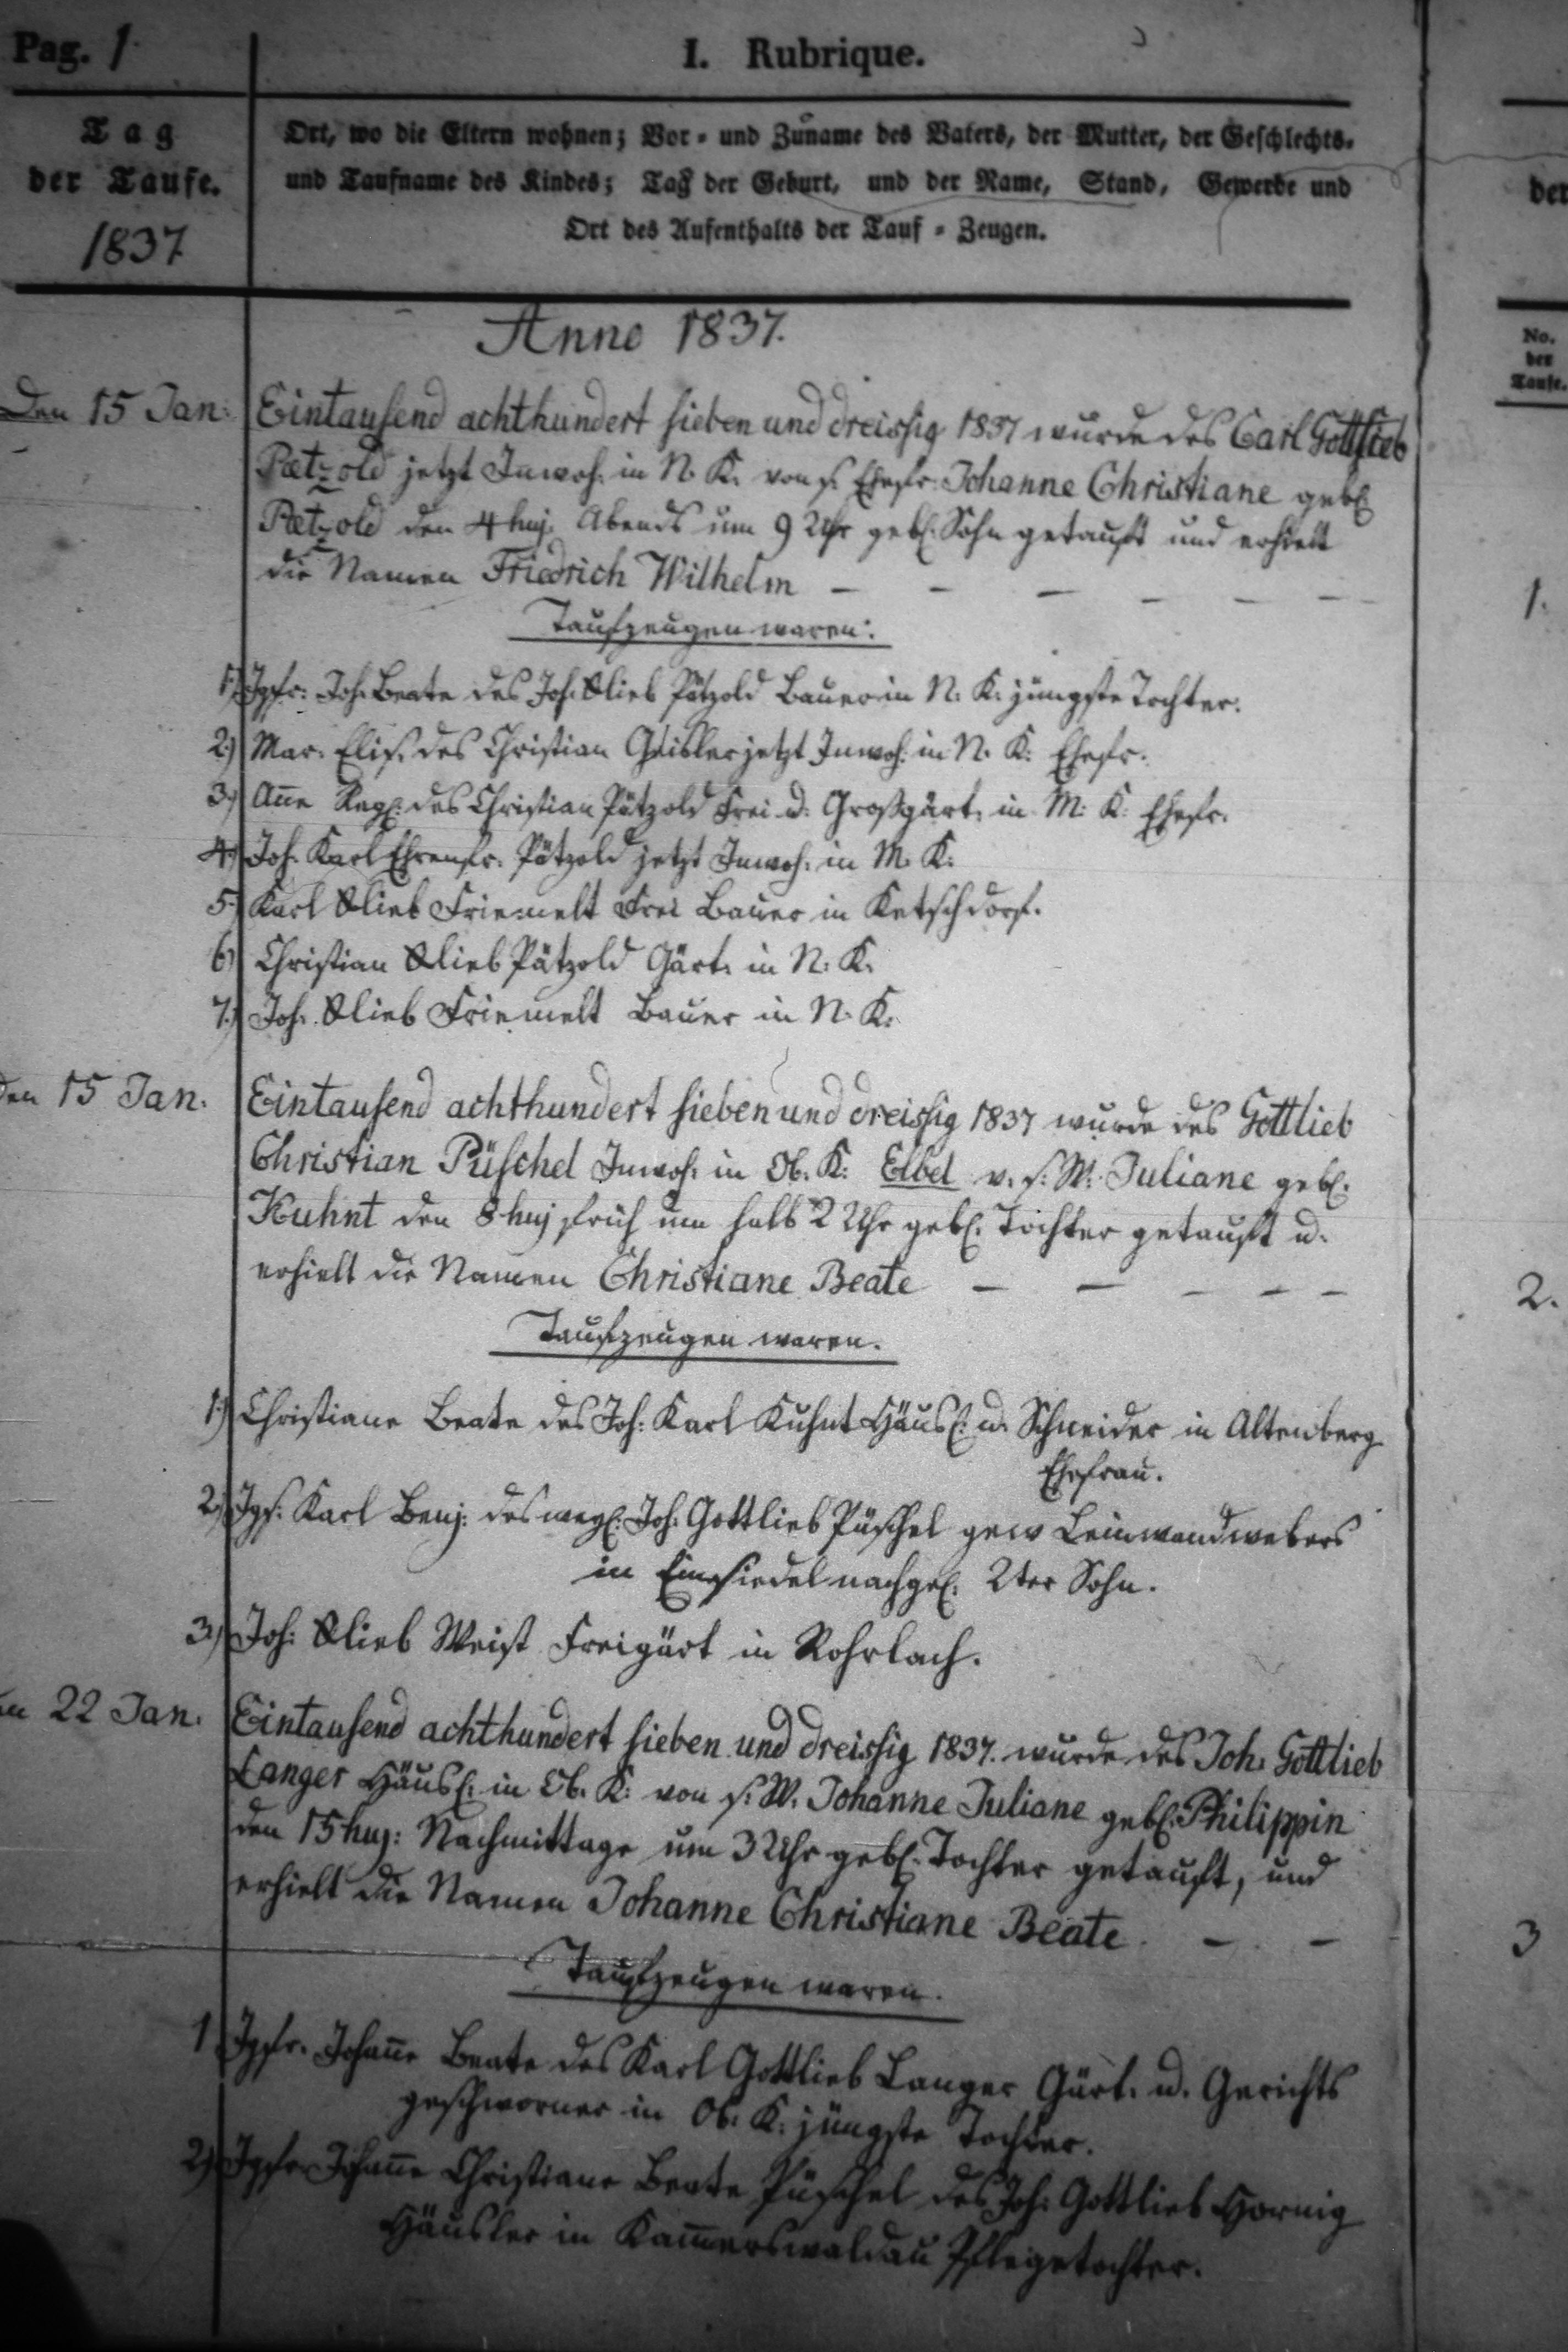 Pag. 1
I. Rubrique.
Tag
der Taufe.
1837
Ort, wo die Eltern wohnen; Vor- und Zuname des Vaters, der Mutter, der Geschlechts-
und Taufname des Kindes; Tag der Geburt, und der Name, Stand, Gewerbe und
Ort des Aufenthalts der Tauf-Zeugen.
der
No.
der
Taufe.
Anno 1837.
Den 15 Jan:
Eintausend achthundert sieben und dreissig 1837 wurde des Carl Gottlieb
Pætzold jetzt Inwoh. in N. K. von s. Ehefr. Johanne Christiane gebl.
Pætzold den 4 huj. Abends um 9 Uhr gebl. Sohn getauft und erhielt
die Namen Friedrich Wilhelm — — — — — —
1.
Taufzeugen waren:
1.) Jgfr: Joh. Beate des Joh. Glieb Pätzold Bauer in N: K: jüngste Tochter.
2.) Mar. Elis. des Christian Geisler jetzt Inwoh. in N. K. Ehefr.
3.) Añe Regl: des Christian Pätzold Frei u. Großgärt. in M: K: Ehefr.
4.) Joh. Karl Ehrenfr. Pätzold jetzt Inwoh. in M. K.
5.) Karl Glieb Friemelt Frei Bauer in Ketschdorf.
6.) Christian Glieb Pätzold Gärt. in N: K.
7.) Joh. Glieb Friemelt Bauer in N. K.
den 15 Jan.
Eintausend achthundert sieben und dreissig 1837 wurde des Gottlieb
Christian Püschel Inwoh. in Ob. K: Elbel v. s. W. Juliane gebl.
Kuhnt den 8 huj früh um halb 2 Uhr gebl. Tochter getauft u.
erhielt die Namen Christiane Beate — — — — —
2.
Taufzeugen waren.
1.) Christiane Beate des Joh: Karl Kuhnt Häusl: u. Schneider in Altenberg
Ehefrau.
2.) Jgs. Karl Benj. des wegl. Joh. Gottlieb Püschel gew Leinwandwebers
in Einsiedel nachgel. 2ter Sohn.
3.) Joh: Glieb Weist Freigärt in Rohrlach.
en 22 Jan.
Eintausend achthundert sieben und dreissig 1837. wurde des Joh. Gottlieb
Langer Häusl. in Ob. K: von s. W. Johanne Juliane gebl. Philippin
den 15 huj: Nachmittage um 3 Uhr gebl. Tochter getauft, und
erhielt die Namen Johanne Christiane Beate. — —
3
Taufzeugen waren.
1 Jgfr. Johañe Beate des Karl Gottlieb Langer Gärt. u. Gerichts
geschworner in Ob. K: jüngste Tochter.
2.) Jgfr. Johañe Christiane Beate Püschel des Joh: Gottlieb Hornig
Häusler in Kam̃erswaldau Pflegetochter.